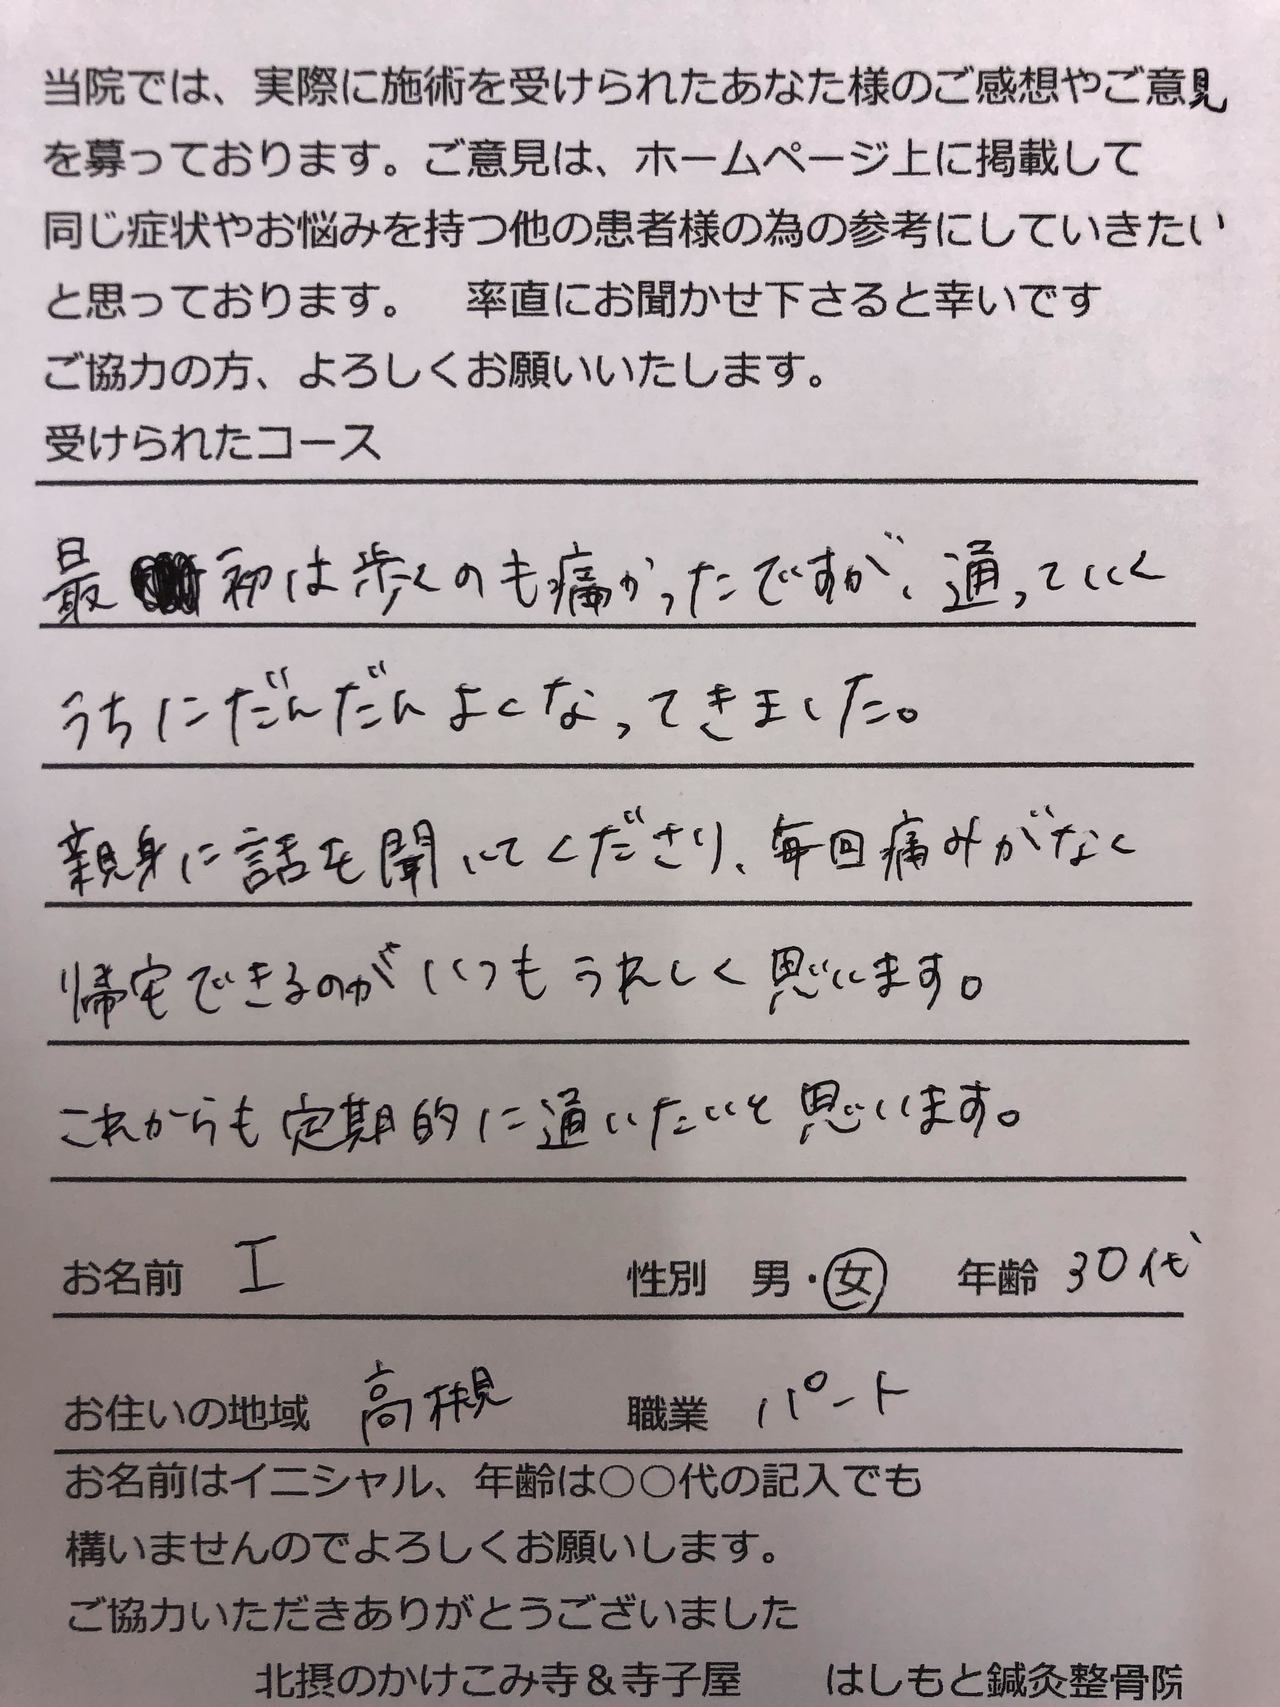 当院では、実際に施術を受けられたあなた様のご感想やご意見
を募っております。ご意見は、ホームページ上に掲載して
同じ症状やお悩みを持つ他の患者様の為の参考にしていきたい
と思っております。　率直にお聞かせ下さると幸いです
ご協力の方、よろしくお願いいたします。
受けられたコース
最初は歩くのも痛かったですが、通っていく
うちにだんだんよくなってきました。
親身に話を聞いてくださり、毎回痛みがなく
帰宅できるのがいつもうれしく思います。
これからも定期的に通いたいと思います。
お名前　I　性別　男・女　年齢　30代
お住いの地域　高槻　職業　パート
お名前はイニシャル、年齢は〇〇代の記入でも
構いませんのでよろしくお願いします。
ご協力いただきありがとうございました
北摂のかけこみ寺＆寺子屋　はしもと鍼灸整骨院